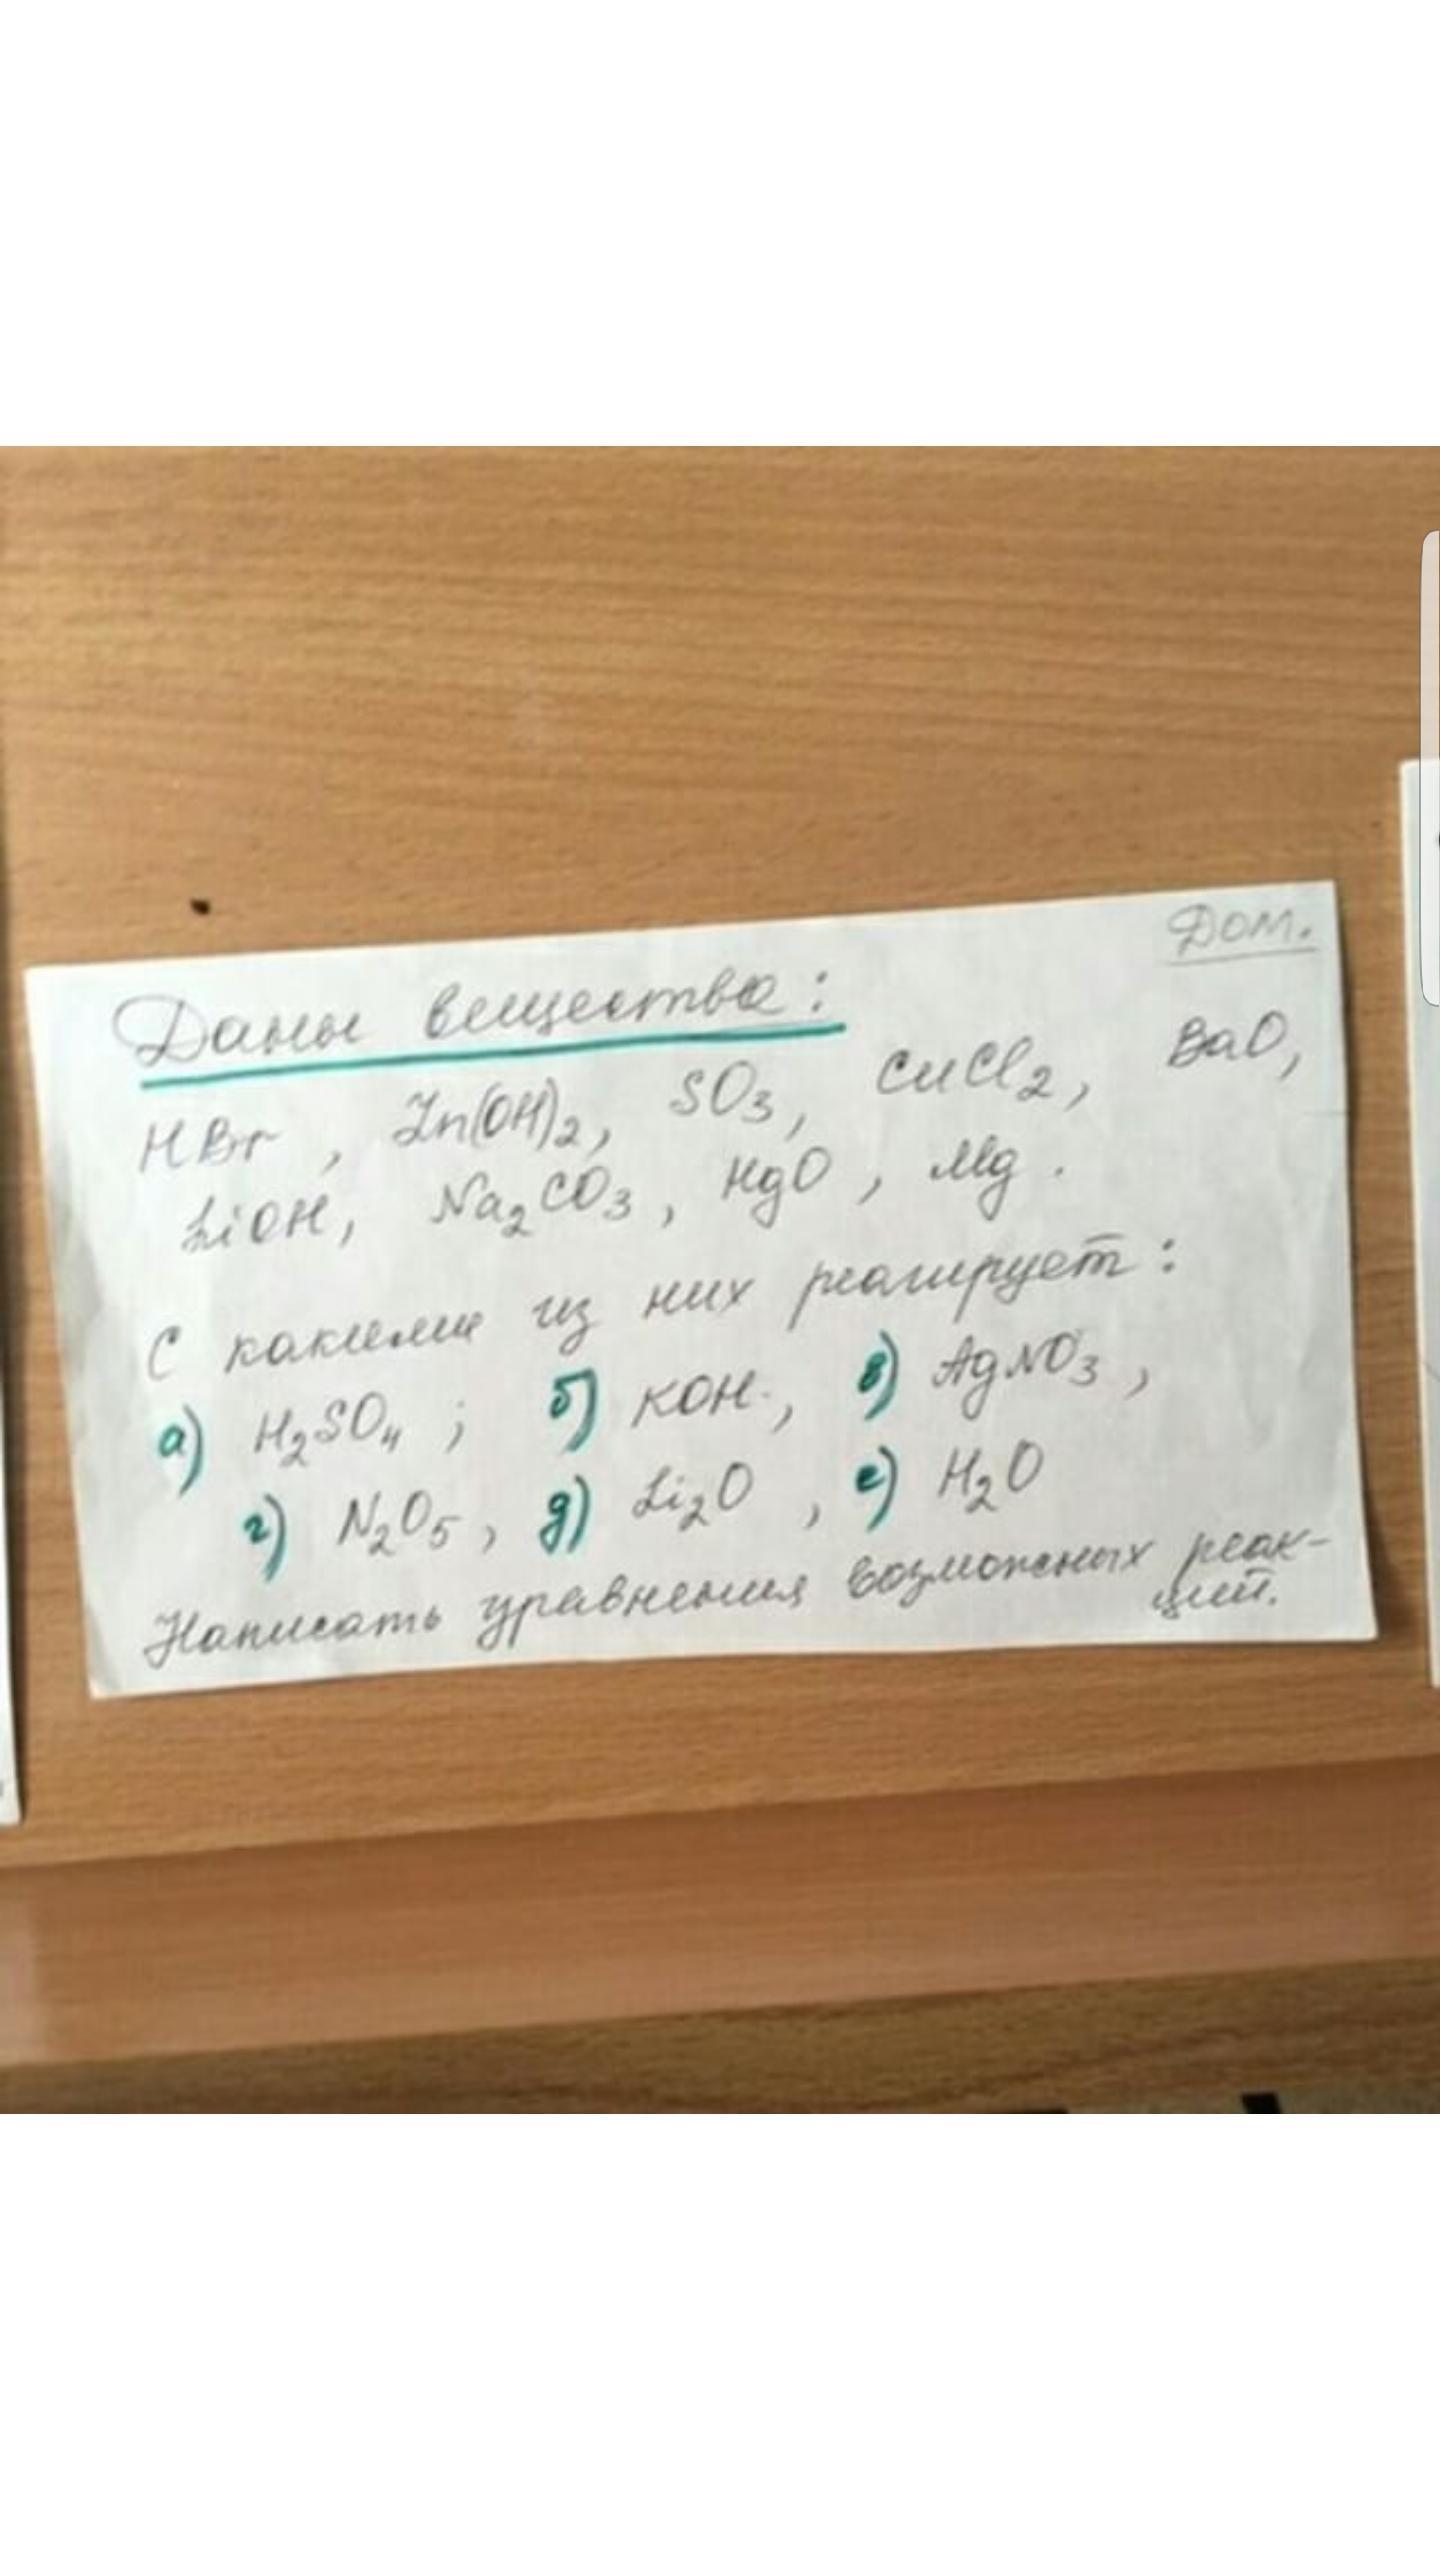 Дом.
Даны вещества:
HBr, Zn(OH)₂, SO₃, CuCl₂, BaO,
LiOH, Na₂CO₃, HgO, Mg.
С какими из них реагирует:
а) H₂SO₄; б) KOH, в) AgNO₃,
г) N₂O₅, д) Li₂O, е) H₂O
Написать уравнения возможных реак-
ций.